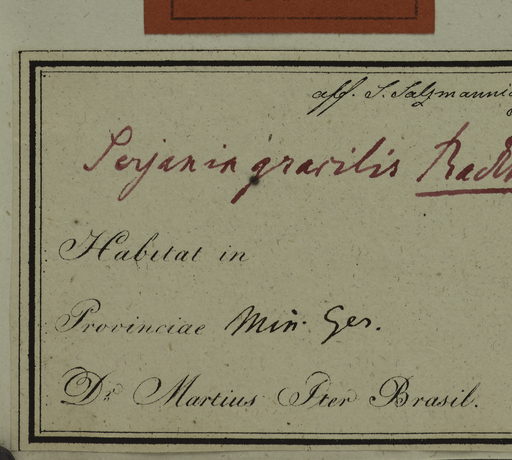 aff. S. Salzmanni
Serjania gracilis Radlk
Habitat in
Provinciae Min. Ger.
Dr Martius Iter Brasil.